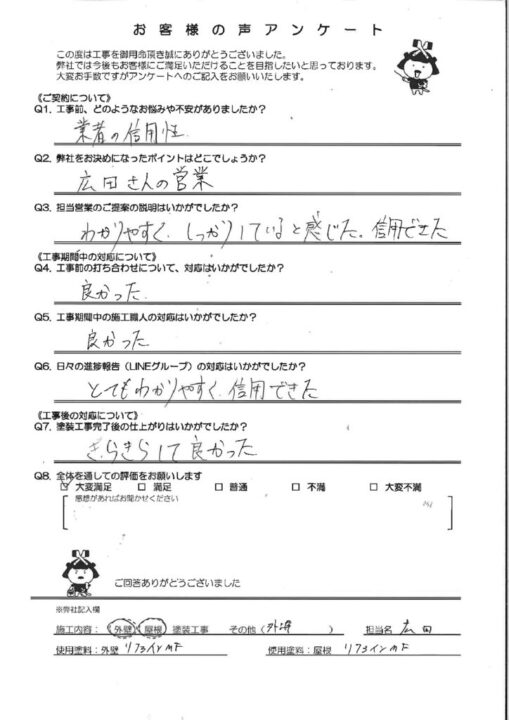 お客様の声アンケート
この度は工事を御用命頂き誠にありがとうございました。
弊社では今後もお客様にご満足いただけることを目指したいと思っております。
大変お手数ですがアンケートへのご記入をお願いいたします。
《ご契約について》
Q1. 工事前、どのようなお悩みや不安がありましたか？
業者の信用性
Q2. 弊社をお決めになったポイントはどこでしょうか？
広田さんの営業
Q3. 担当営業のご提案の説明はいかがでしたか？
わかりやすく、しっかりしていると感じた。信用できた
《工事期間中の対応について》
Q4. 工事前の打ち合わせについて、対応はいかがでしたか？
良かった
Q5. 工事期間中の施工職人の対応はいかがでしたか？
良かった
Q6. 日々の進捗報告（LINEグループ）の対応はいかがでしたか？
とてもわかりやすく、信用できた
《工事後の対応について》
Q7. 塗装工事完了後の仕上がりはいかがでしたか？
きらきらして良かった
Q8. 全体を通しての評価をお願いします
☑ 大変満足 □ 満足 □ 普通 □ 不満 □ 大変不満
感想があればお聞かせください
ご回答ありがとうございました
※弊社記入欄
施工内容：外壁・屋根 塗装工事 その他（外塀） 担当名 広田
使用塗料：外壁 リファインMF 使用塗料：屋根 リファインMF